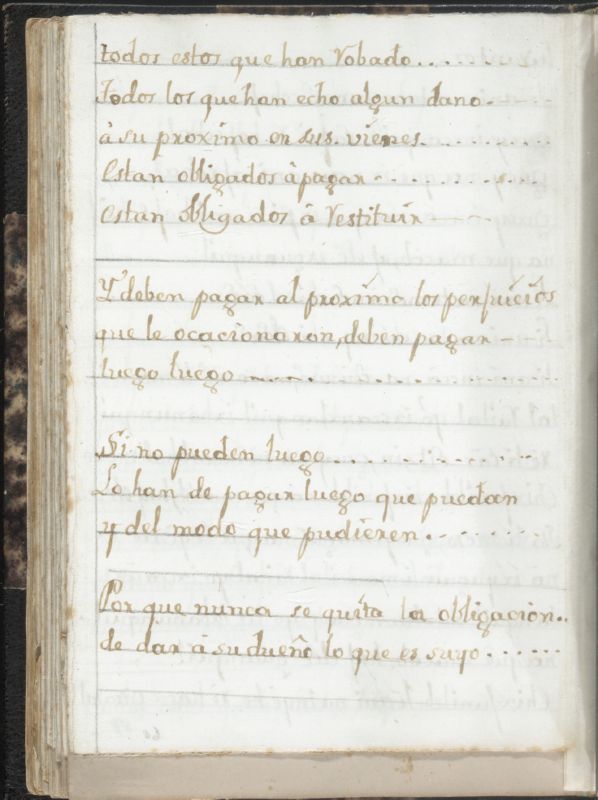 todos estos que han robado........
Todos los que han echo algun dano.
à su proximo en sus vienes..........
Estan obligados â pagar - . . . . . . .
Estan obligados â restituir - - -
Y deben pagar al proximo los perjuicios
que le ocacionaron, deben pagar -
luego luego ..............
Si no pueden luego..............
Lo han de pagar luego que puedan
y del modo que pudieren.........
Por que nunca se quita la obligacion..
de dar à su dueño lo que es suyo.......